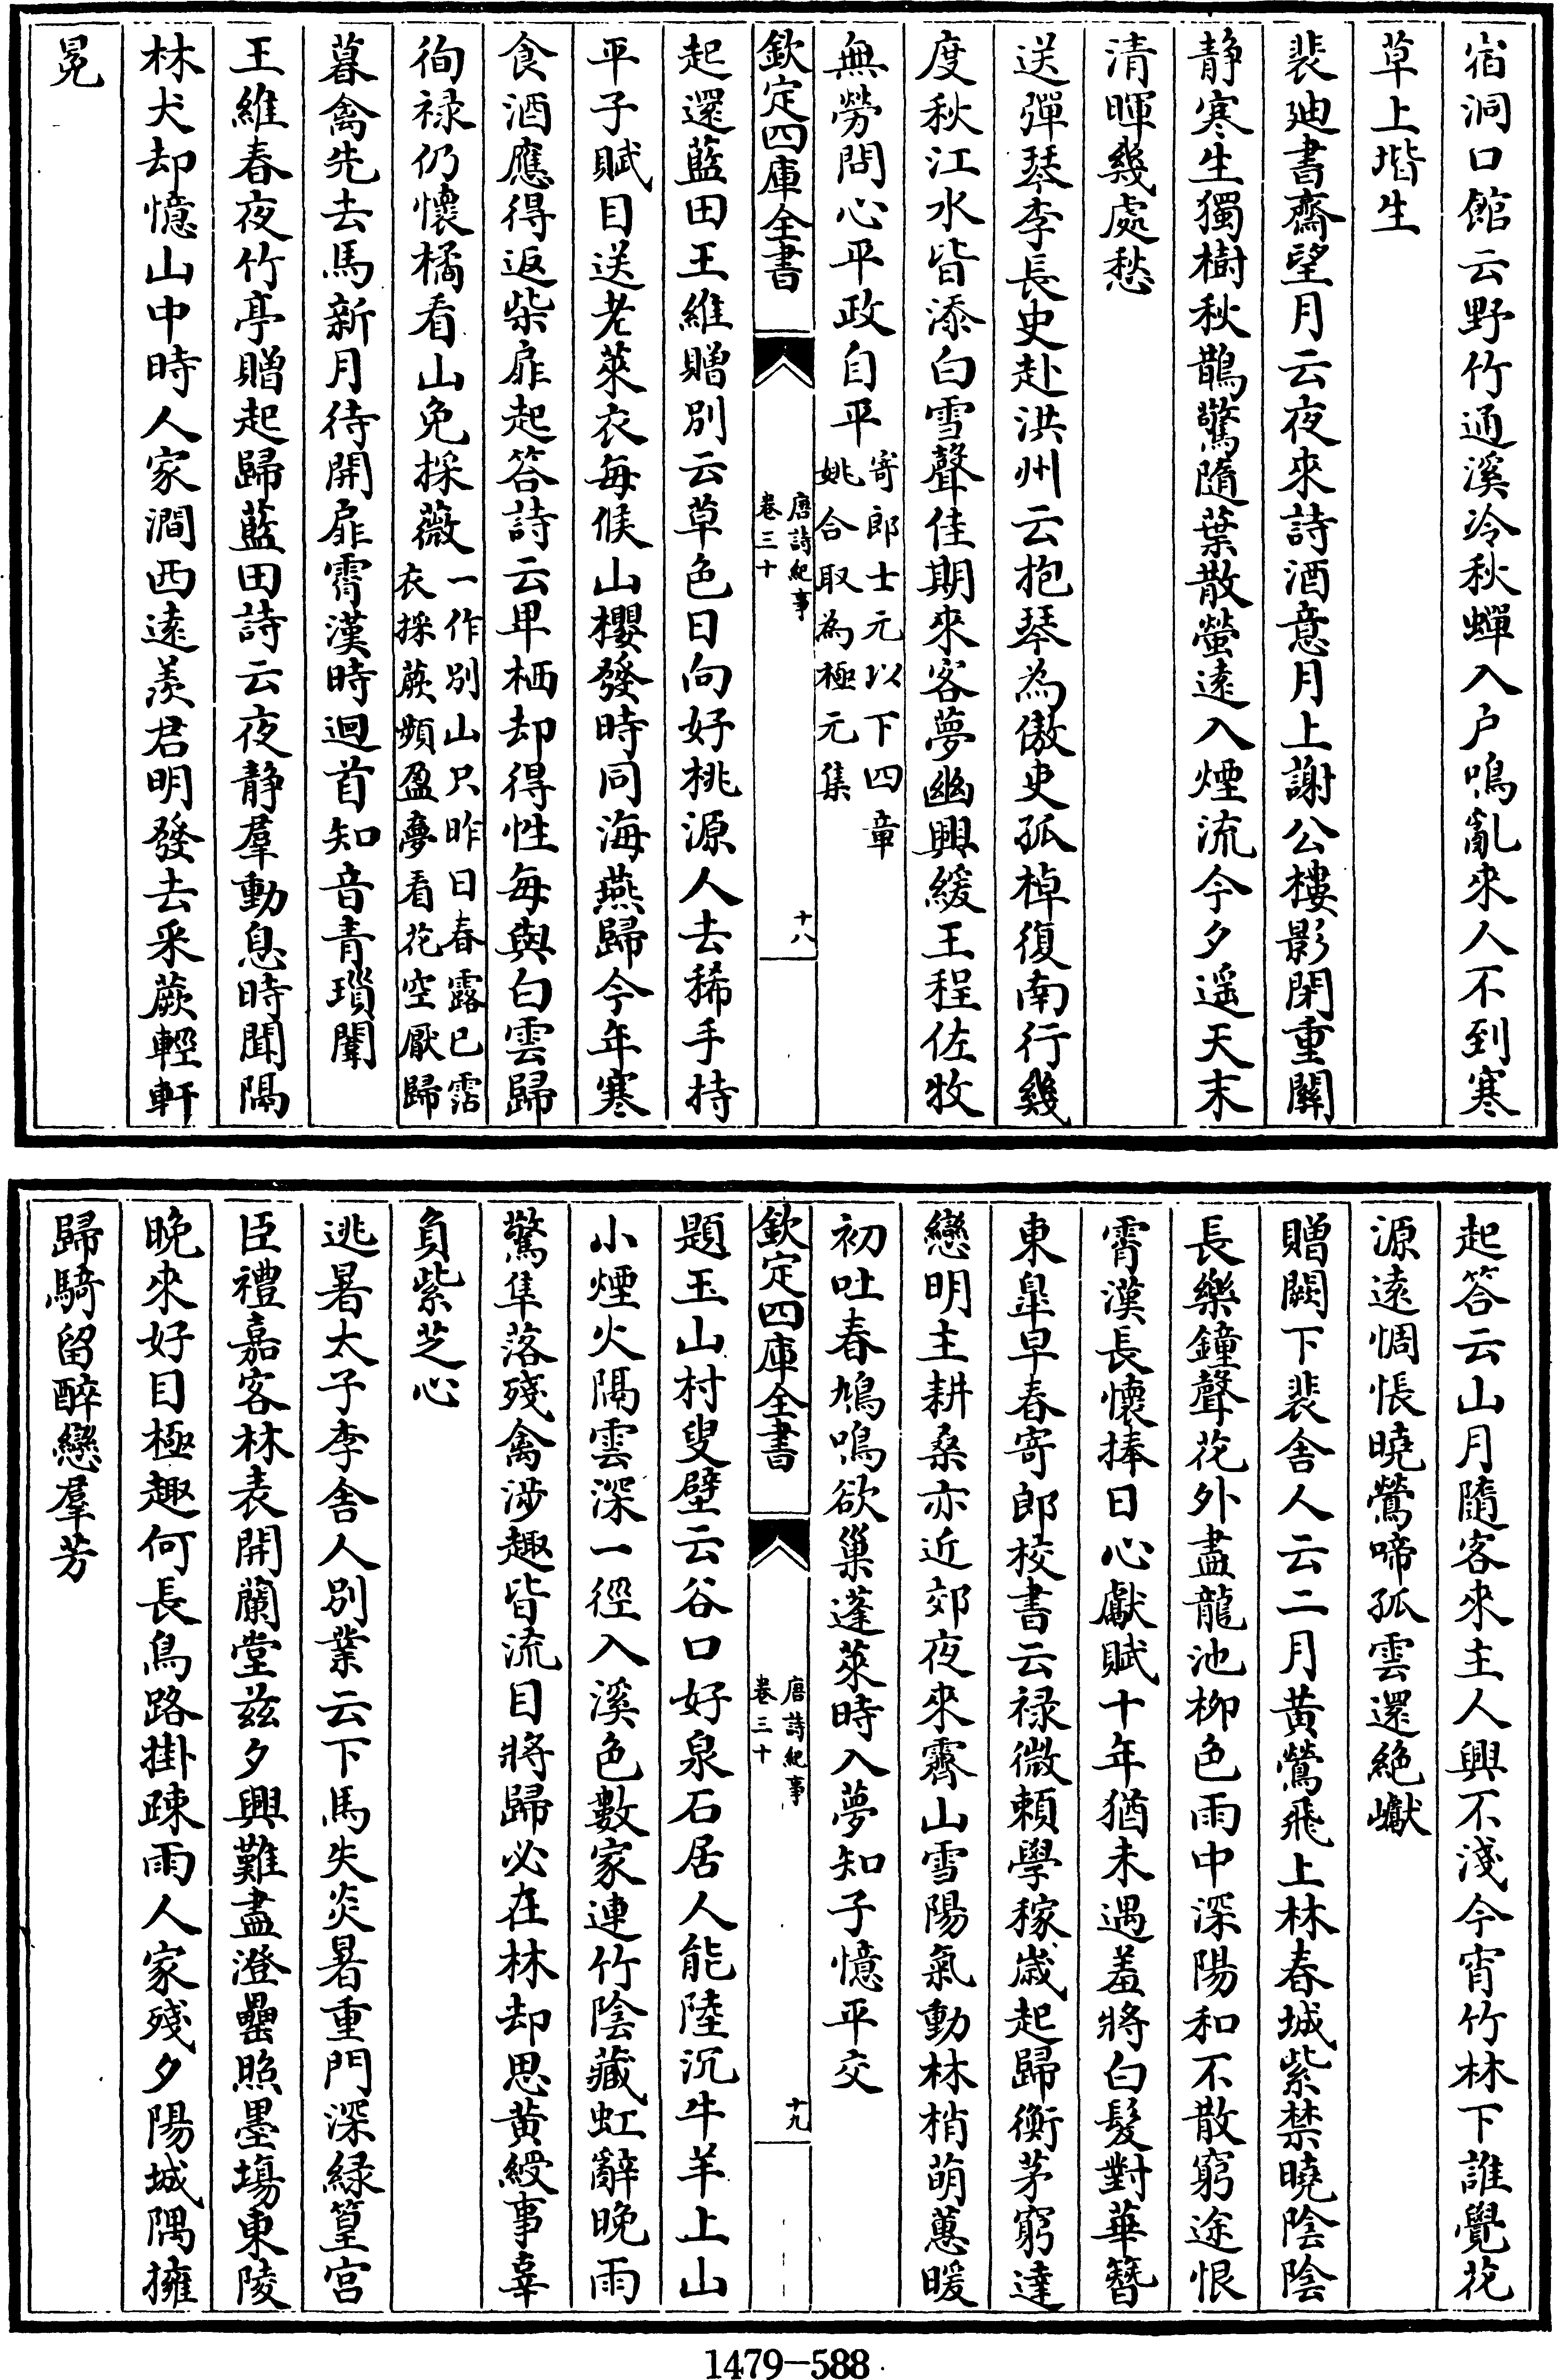 宿洞口館云野竹通溪冷秋蟬入户鳴亂來人不到寒
草上堦生
裴廸書齋望月云夜來詩酒意月上謝公樓影閉重闗
静寒生獨樹秋鵲驚隨葉散螢遠入煙流今夕遥天末
清暉幾處愁
送彈琴李長史赴洪州云抱琴為傲吏孤棹復南行幾
度秋江水皆添白雪聲佳期來客夢幽興緩王程佐牧
無勞問心平政自平
寄郎士元以下四章
姚合取為極元集
欽定四庫全書
唐詩紀事
卷三十
十八
起還藍田王維贈別云草色日向好桃源人去稀手持
平子賦目送老萊衣每候山櫻發時同海燕歸今年寒
食酒應得返柴扉起答詩云卑栖却得性每與白雲歸
徇禄仍懷橘看山免採薇
一作別山只昨日春露已霑
衣採蕨頻盈夢看花空厭歸
暮禽先去馬新月待開扉霄漢時迴首知音青瑣闈
王維春夜竹亭贈起歸藍田詩云夜静羣動息時聞隔
林犬却憶山中時人家澗西遠羨君明發去采蕨輕軒
冕
起答云山月隨客來主人興不淺今宵竹林下誰覺花
源遠惆悵曉鶯啼孤雲還絶巘
贈闕下裴舍人云二月黄鶯飛上林春城紫禁曉陰陰
長樂鐘聲花外盡龍池柳色雨中深陽和不散窮途恨
霄漢長懷捧日心獻賦十年猶未遇羞將白髪對華簪
東臯早春寄郎校書云禄微賴學稼歲起歸衡茅窮達
戀明主耕桑亦近郊夜來霽山雪陽氣動林梢萌蕙暖
初吐春鳩鳴欲巢蓬萊時入夢知子憶平交
欽定四庫全書
唐詩紀事
卷三十
十九
題玉山村叟壁云谷口好泉石居人能陸沉牛羊上山
小煙火隔雲深一徑入溪色數家連竹陰藏虹辭晚雨
驚隼落殘禽涉趣皆流目將歸必在林却思黄綬事辜
負紫芝心
逃暑太子李舍人別業云下馬失炎暑重門深緑篁宫
臣禮嘉客林表開蘭堂兹夕興難盡澄罍照墨塲東陵
晚來好目極趣何長鳥路掛疎雨人家殘夕陽城隅擁
歸騎留醉戀羣芳
1479—588